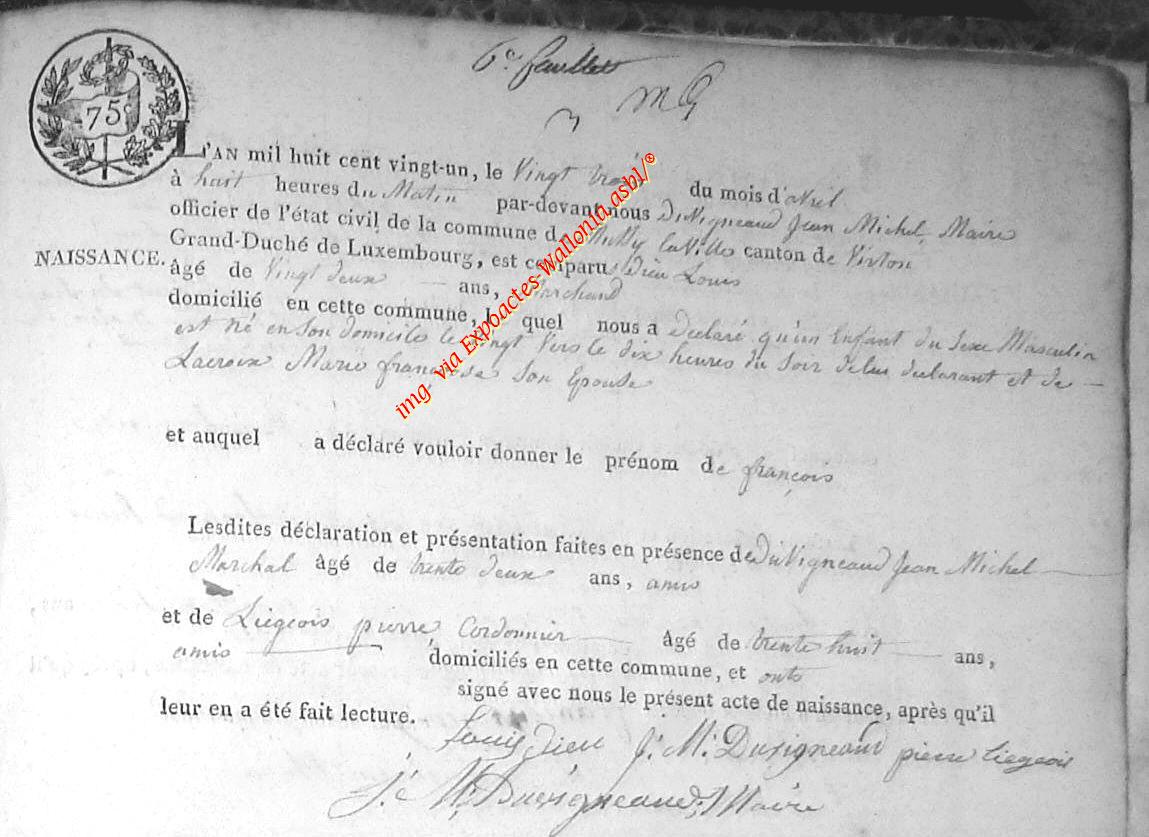 6e feuillet
75c
L'AN mil huit cent vingt-un, le Vingt trois du mois d'avril
à huit heures du Matin par-devant nous DuVigneaud Jean Michel, Maire
officier de l'état civil de la commune de Mussy la Ville canton de Virton
NAISSANCE. Grand-Duché de Luxembourg, est comparu Dieu Louis
âgé de Vingt deux ans, Marchand
domicilié en cette commune, le quel nous a Déclaré qu'un Enfant du Sexe Masculin
est né en Son domicile le Vingt Vers le dix heures du Soir de lui declarant et de
Lacroix Marie françoise Son Epouse
et auquel a déclaré vouloir donner le prénom de françois
Lesdites déclaration et présentation faites en présence de DuVigneaud Jean Michel
Marchal âgé de trente deux ans, amis
et de Liegeois pierre, Cordonnier âgé de trente huit ans,
amis domiciliés en cette commune, et onts
signé avec nous le présent acte de naissance, après qu'il
leur en a été fait lecture.
Louis Dieu J. M. Duvigneaud pierre liegeois
J. M. Duvigneaud, Maire
img via Expoactes-Wallonia.asbl/®